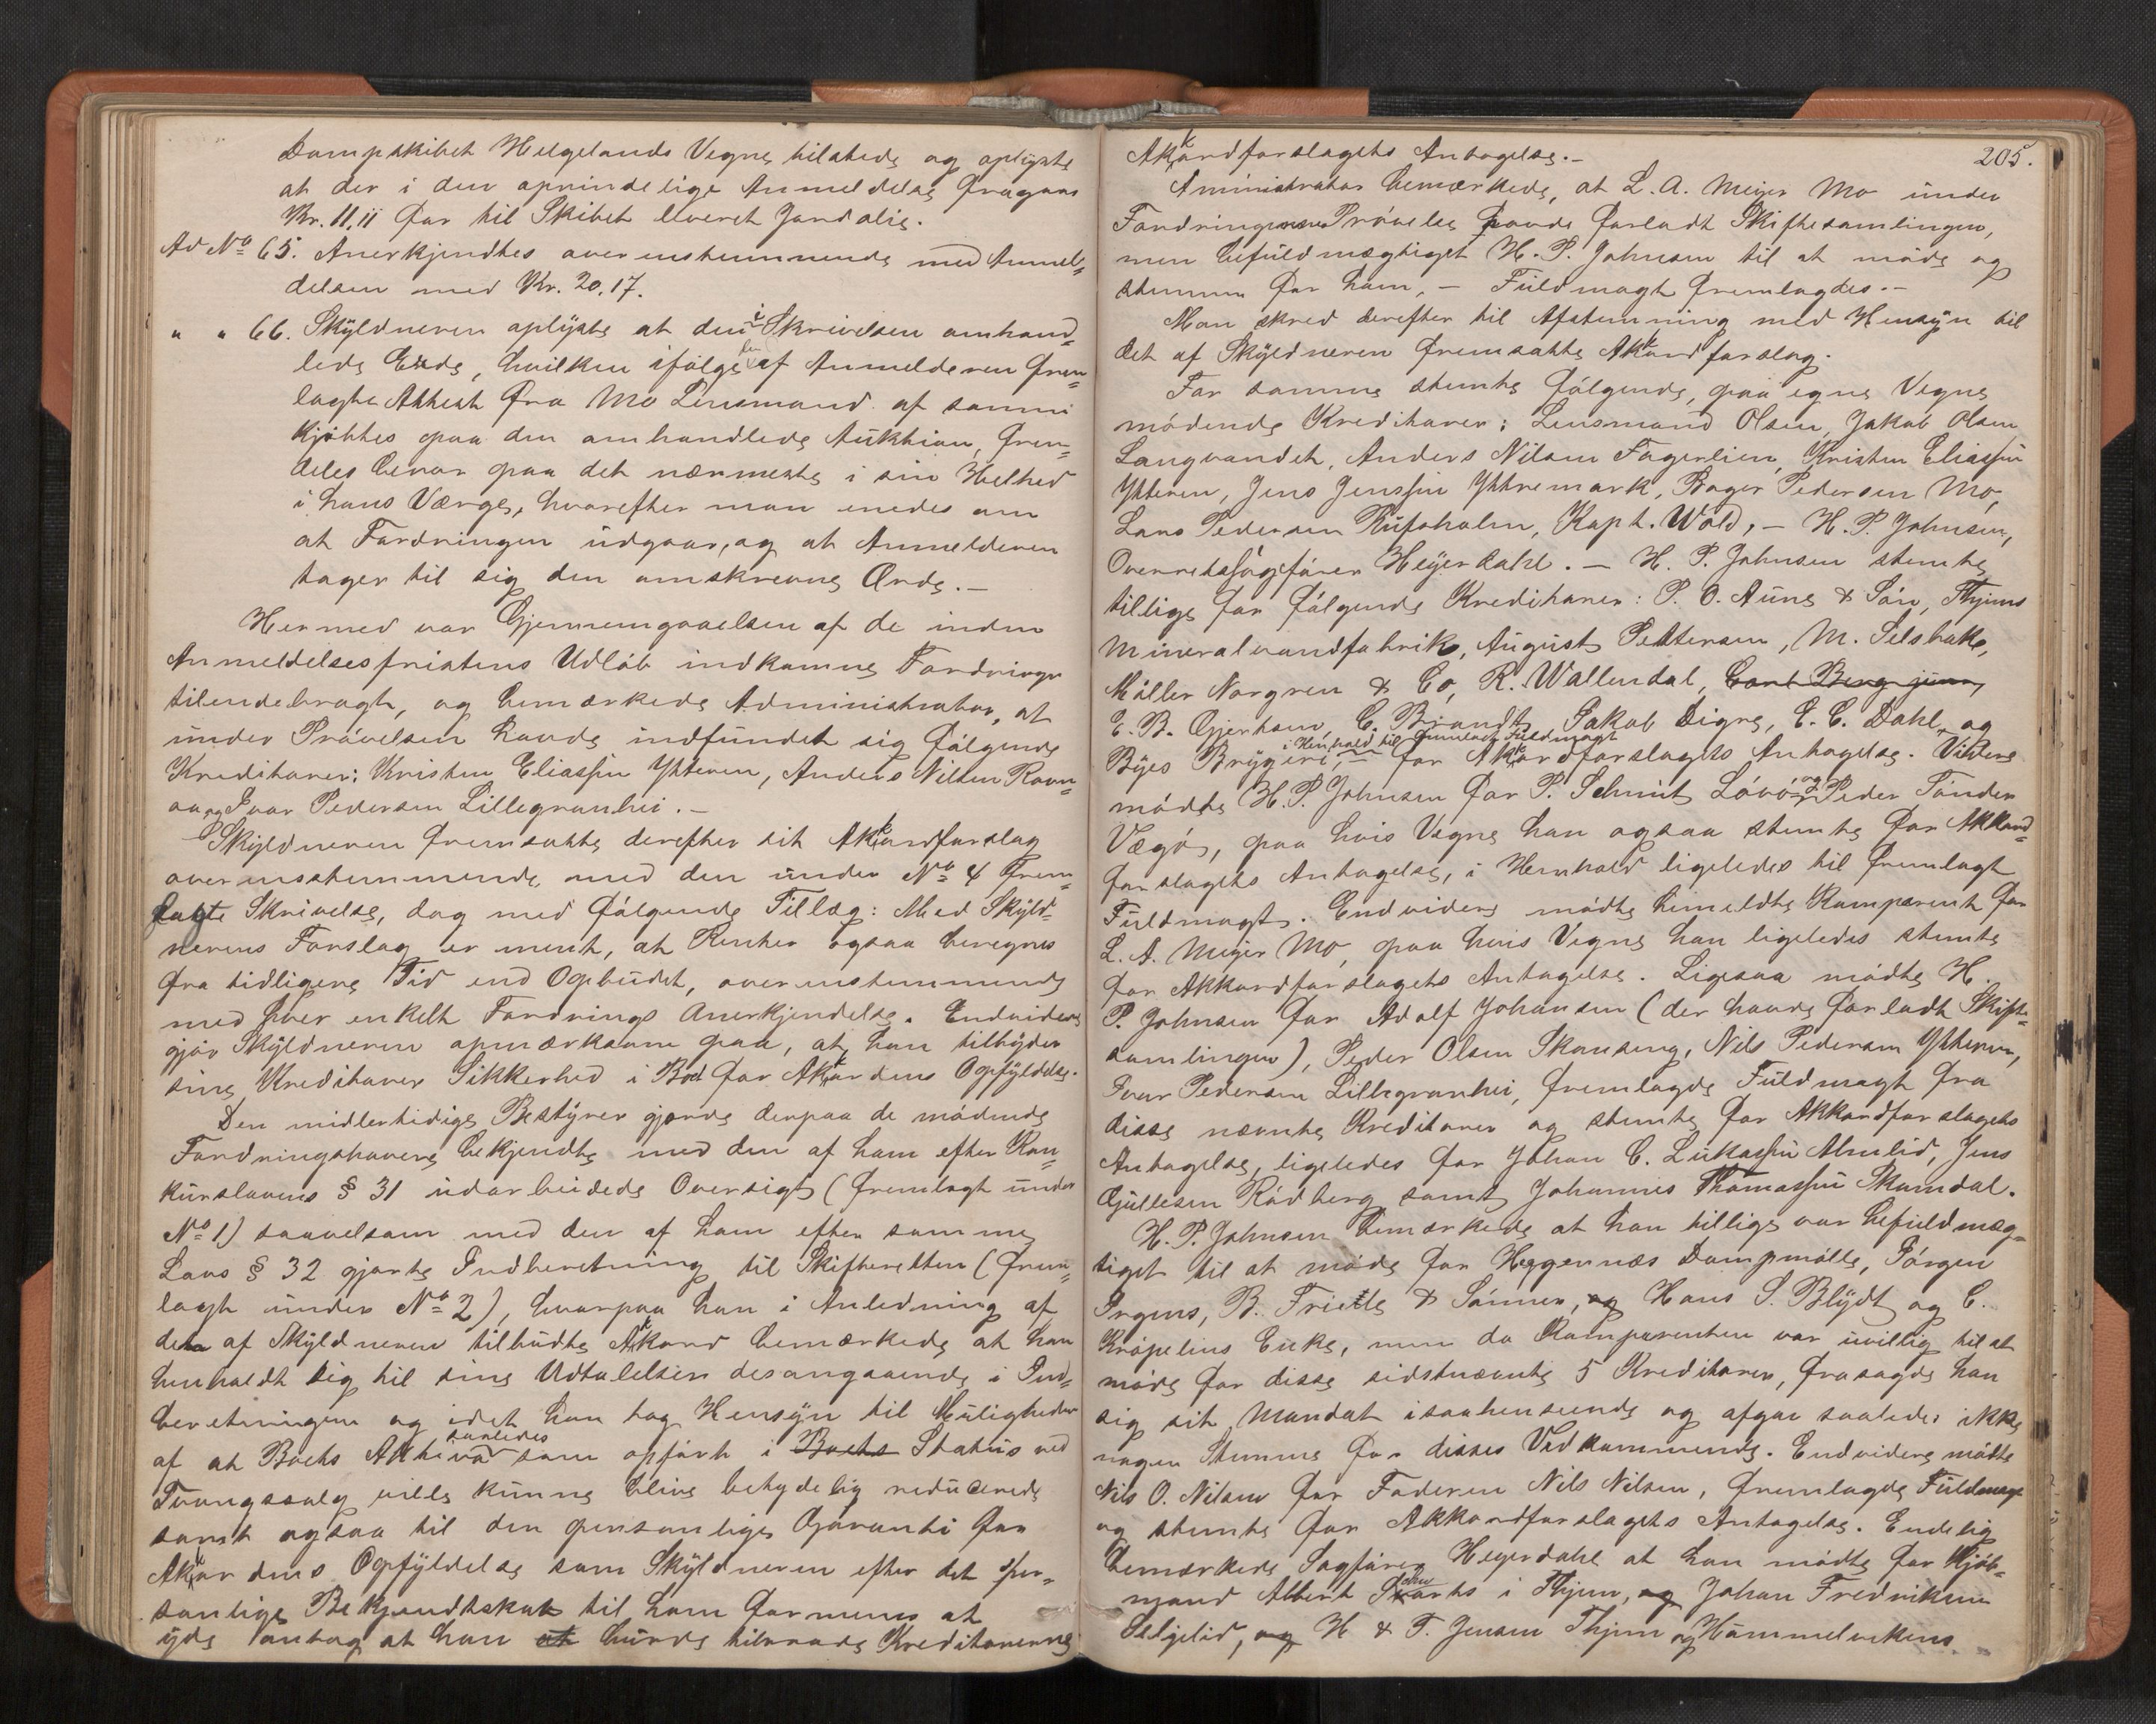 Dampskibet Helgelands Vegne tilstede og oplyste
at der i den oprindelige Anmeldelse fragaar
Kr. 11,11 for til Skibet leveret Jordolie.
Ad No 65. Anerkjendtes overensstemmende med Anmel-
delsen med Kr. 20,17.
" " 66. Skyldneren oplyste at den i Skrivelsen omhand-
lede Ende, hvilken ifølge den af Anmelderen frem-
lagte Attest fra Mo Lensmand af samme
kjøbtes paa den omhandlede Auktion, frem-
deles beror paa det nærmeste i sin Helhed
i hans Værge, hvorefter man enedes om
at Fordringen udgaar, og at Anmelderen
tager til sig den omskrevne Ende.-
Hermed var Gjennemgaaelsen af de inden
Anmeldelsesfristens Udløb indkomne Fordringer
tilendebragt, og bemærkede Administrator, at
under Prøvelsen havde indfundet sig følgende
Kreditorer: Kristen Eliassen Ytteren, Anders Nilsen Ravn-
aa, og Ivar Pedersen Lillegranhei.-
Skyldneren fremsatte derefter sit Akkordforslag
overensstemmende med den under No 4 frem-
lagte Skrivelse, dog med følgende Tillæg: Med Skyld-
nerens Forslag er ment, at Renter ogsaa beregnes
fra tidligere Tid end Opbudet, overensstemmende
med hver enkelt Fordrings Anerkjendelse. Endvidere
gjør Skyldneren opmærksom paa, at han tilbyder
sine Kreditorer Sikkerhed i Boet for Akkordens Opfyldelse.
Den midlertidige Bestyrer gjorde derpaa de mødende
Fordringshavere bekjendte med den af ham efter Kon-
kurslovens § 31 udarbeidede Oversigt (fremlagt under
No 1) saavelsom med den af ham efter samme
Lovs § 32 gjorte Indberetning til Skifteretten (frem-
lagt under No 2), hvorpaa han i Anledning af
den af Skyldneren tilbudte Akkord bemærkede at han
henholdt sig til sine Udtalelser desangaaende i Ind-
beretningen og idet han tog Hensyn til Muligheden
af at Boets Aktiva saaledes som opført i Boets Status ved
Tvangssalg ville kunne blive betydelig reducerede
samt ogsaa til den personlige Garanti for
Akkordens Opfyldelse som Skyldneren efter det per-
sonlige Bekjendtskab til ham formenes at
yde antog at han at burde tilraade Kreditorerne
205.
Akkordforslagets Antagelse.-
Aministrator bemærkede, at L. A. Meyer Mo under
Fordringernes Prøvelse havde forladt Skiftesamlingen,
men befuldmægtiget H. P. Johnsen til at møde og
stemme for ham, - Fuldmagt fremlagdes.-
Man skred derefter til Afstemning med Hensyn til
det af Skyldneren fremsatte Akkordforslag.
For samme stemte følgende, paa egne Vegne
mødende Kreditorer: Lensmand Olsen, Jakob Olsen
Langvandet, Anders Nilsen Fagerlien, Kristen Eliassen
Ytteren, Jens Jenssen Yttremark, Roger Pedersen Mo,
Lars Pedersen Rufsholm, Kapt. Wold, - H. P. Johnsen,
Overretssagfører Heyerdahl. - H. P. Johnsen stemte
tillige for følgende Kreditorer: P. O. Aune & Søn, Thjems
Mineralvandfabrik, August Pettersen, M. Selsbak,
Møller Norgren & Co, R. Wallendal, Carl Berg junr,
E. B. Gjertsen, C. Brandt, Jakob Digre, E. C. Dahl, og
Byes Bryggeri, i Henhold til fremlagt Fuldmagt for Akkordforslagets Antagelse. Videre
mødte H. P. Johnsen for P. Schmit Løvø og Peder Tønder
Vægø, paa hvis Vegne han ogsaa stemte for Akkord-
forslagets Antagelse, i Henhold ligeledes til fremlagt
Fuldmagt. Endvidere mødte bemeldte Komparent for
L. A. Meyer Mo, paa hvis Vegne han ligeledes stemte
for Akkordforslagets Antagelse. Ligesaa mødte H.
P. Johnsen for Adolf Johansen (der havde forladt Skifte-
samlingen), Peder Olsen Skonseng, Nils Pedersen Ytteren,
Ivar Pedersen Lillegranhei, fremlagde Fuldmagt fra
disse nævnte Kreditorer og stemte for Akkordforslagets
Antagelse, ligeledes for Johan C. Lukassen Almlid, Jens
Gullesen Rødberg samt Johannes Thomassen Skamdal.
H. P. Johnsen bemærkede at han tillige var befuldmæg-
tiget til at møde for Heggernæs Dampmølle, Jørgen
Irgens, B. Friele & Sønner, og Hans S. Blydt og C.
Krøpeliens Enke, men da Komparenten var uvillig til at
møde for disse sidstnævnte 5 Kreditorer, frasagde han
sig sit Mandat isaahenseende og afgav saaledes ikke
nogen Stemme for disses Vedkommende. Endvidere mødte
Nils O. Nilsen for Faderen Nils Nilsen, fremlagde Fuldmagt
og stemte for Akkordforslagets Antagelse. Endelig
bemærkede Sagfører Heyerdahl at han mødte for Kjøb-
mand Albert Schwartz i Thjem, og Johan Fredriksen
Selgelid, og H. & F. Jensen Thjem og Hammelvikens